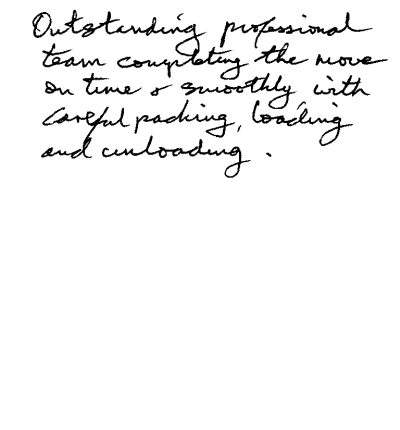 Outstanding professional
team completing the move
on time & smoothly, with
careful packing, loading
and unloading.